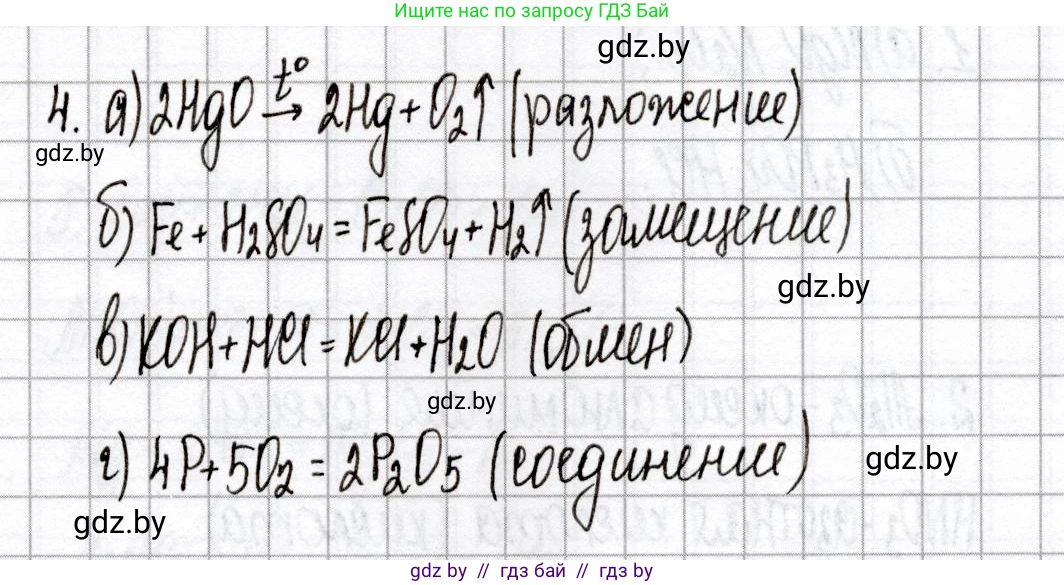 Ищите нас по запросу ГДЗ Бай
gdz.by
4. а) 2HgO t° → 2Hg + O₂↑ (разложение)
gdz.by
б) Fe + H₂SO₄ = FeSO₄ + H₂↑ (замещение)
gdz.by
в) KOH + HCl = KCl + H₂O (обмен)
gdz.by
г) 4P + 5O₂ = 2P₂O₅ (соединение)
gdz.by
gdz.by
gdz by // гдз бай // gdz by